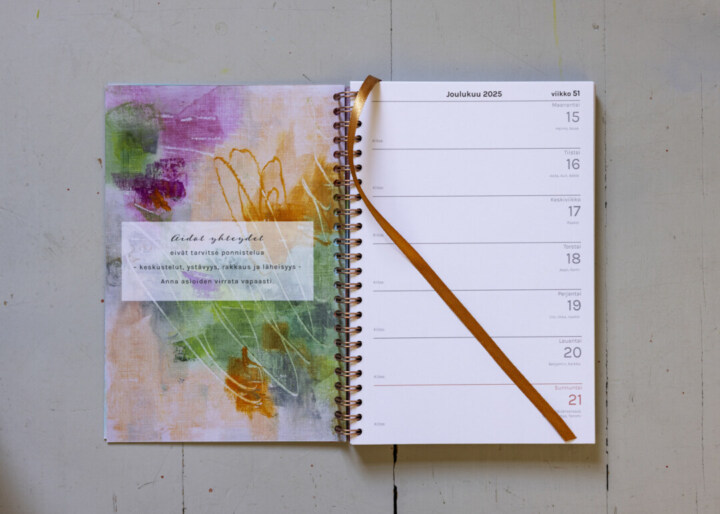 Aidot yhteydet
eivät tarvitse ponnistelua
- keskustelut, ystävyys, rakkaus ja läheisyys -
Anna asioiden virrata vapaasti.
Joulukuu 2025 viikko 51
Maanantai
15
Tiistai
16
Keskiviikko
17
Torstai
18
Perjantai
19
Lauantai
20
Sunnuntai
21